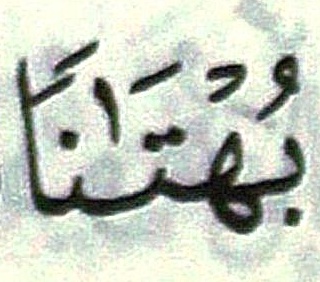 بُهْتَٰنًا